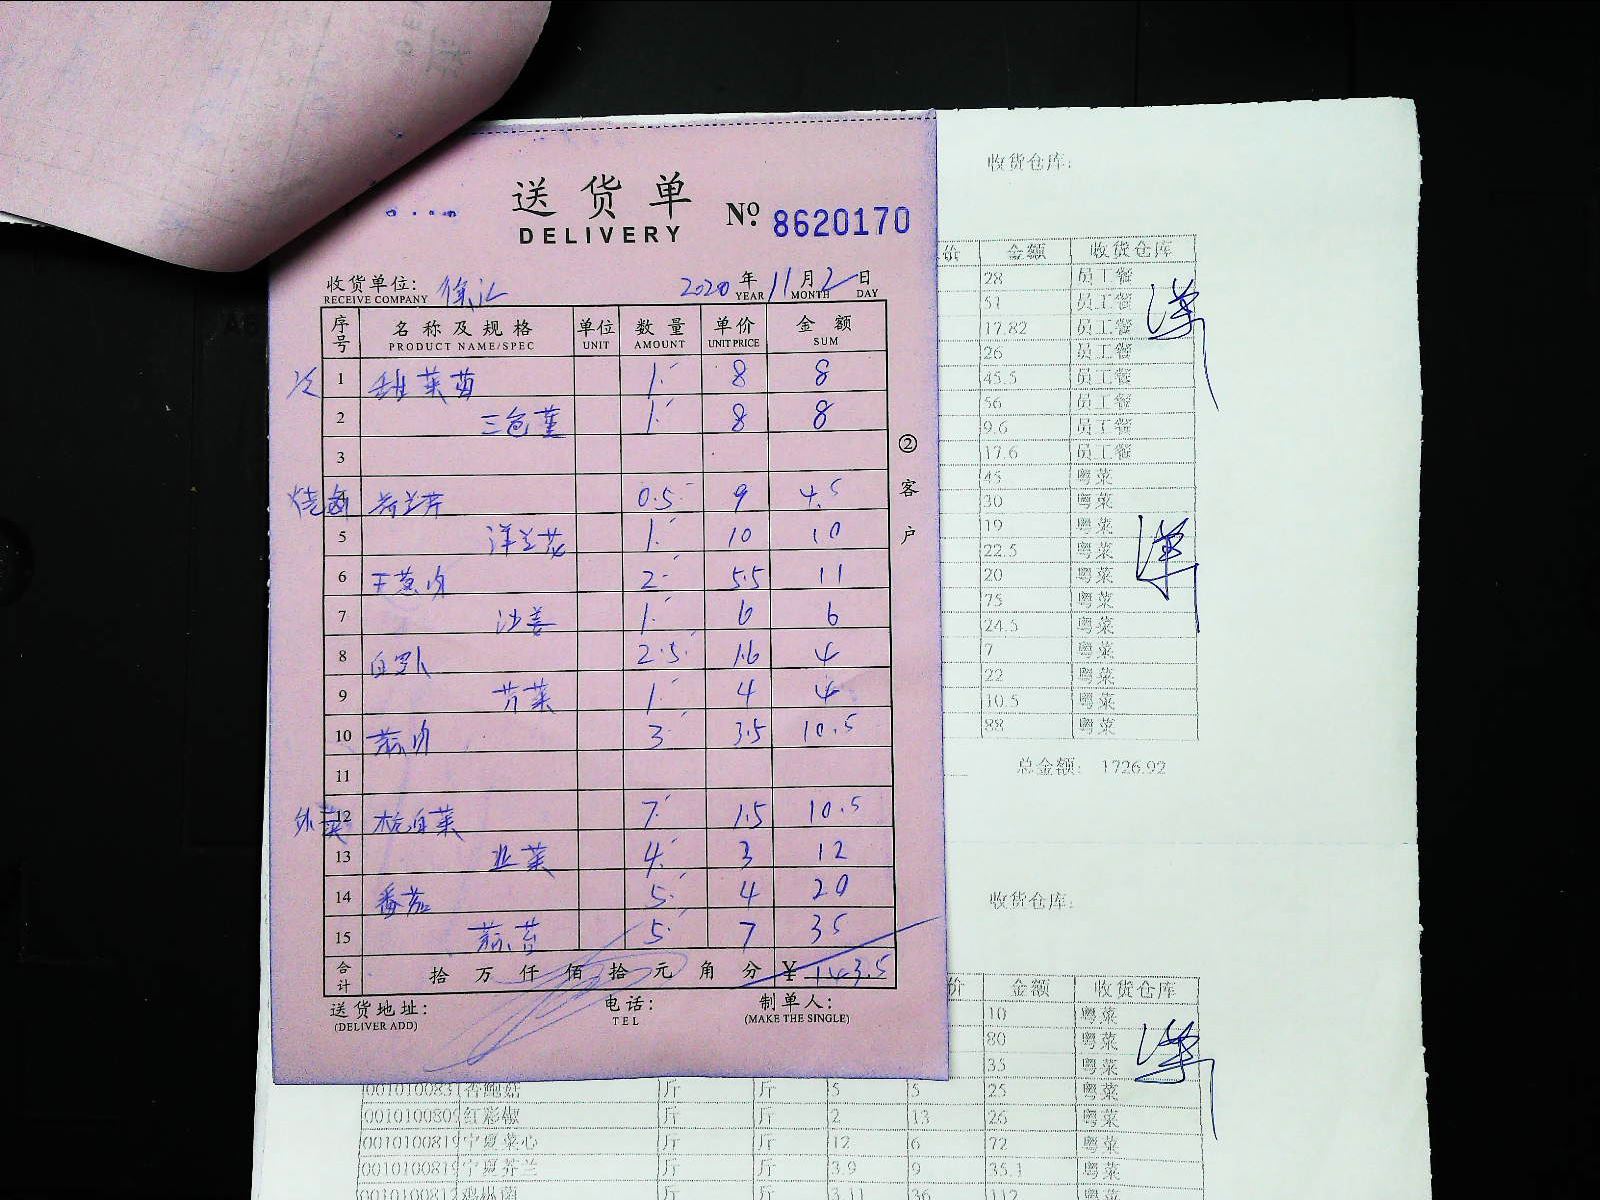 送货单
DELIVERY
No. 8620170
收货单位: 徐汇 2020年11月2日
RECEIVE COMPANY YEAR MONTH DAY
序号 名称及规格 单位 数量 单价 金额
PRODUCT NAME/SPEC UNIT AMOUNT UNIT PRICE SUM
冷 1 甜菜苗 1 8 8
2 三色堇 1 8 8
3
烧卤 4 荷兰芹 0.5 9 4.5
5 洋兰花 1 10 10
6 干葱肉 2 5.5 11
7 沙姜 1 6 6
8 白罗卜 2.5 1.6 4
9 芹菜 1 4 4
10 蒜肉 3 3.5 10.5
11
外菜 12 杭白菜 7 1.5 10.5
13 韭菜 4 3 12
14 番茄 5 4 20
15 蒜苔 5 7 35
合计 拾万仟佰拾元角分 ¥ 143.5
送货地址: 电话: 制单人:
(DELIVER ADD) TEL (MAKE THE SINGLE)
②客户
收货仓库:
价 金额 收货仓库
28 员工餐
51 员工餐
17.82 员工餐
26 员工餐
45.5 员工餐
56 员工餐
9.6 员工餐
17.6 员工餐
45 粤菜
30 粤菜
19 粤菜
22.5 粤菜
20 粤菜
75 粤菜
24.5 粤菜
7 粤菜
22 粤菜
10.5 粤菜
88 粤菜
总金额: 1726.92
收货仓库:
价 金额 收货仓库
10 粤菜
80 粤菜
35 粤菜
香鲍菇 斤 斤 5 5 25 粤菜
红彩椒 斤 斤 2 13 26 粤菜
宁夏菜心 斤 斤 12 6 72 粤菜
宁夏芥兰 斤 斤 3.9 9 35.1 粤菜
鸡枞菌 斤 斤 3.11 36 112 粤菜